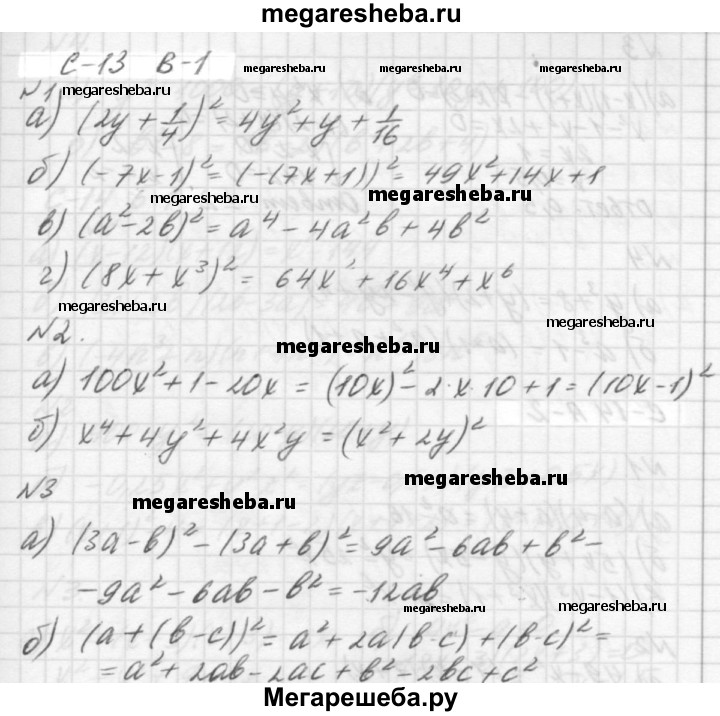 megaresheba.ru
С-13 В-1 megaresheba.ru megaresheba.ru megaresheba.ru
№1 megaresheba.ru
а) (2y + 1/4)² = 4y² + y + 1/16
б) (-7x-1)² = (-(7x+1))² = 49x²+14x+1
megaresheba.ru megaresheba.ru
в) (a²-2b)² = a⁴ - 4a²b + 4b²
г) (8x + x³)² = 64x² + 16x⁴ + x⁶
megaresheba.ru megaresheba.ru
№2. megaresheba.ru
а) 100x²+1-20x = (10x)²-2·x·10+1 = (10x-1)²
б) x⁴+4y²+4x²y = (x²+2y)²
№3 megaresheba.ru megaresheba.ru
а) (3a-b)² - (3a+b)² = 9a² - 6ab + b² -
- 9a² - 6ab - b² = -12ab
megaresheba.ru megaresheba.ru
б) (a+(b-c))² = a² + 2a(b-c) + (b-c)² =
= a² + 2ab - 2ac + b² - 2bc + c²
Мегарешеба.ру